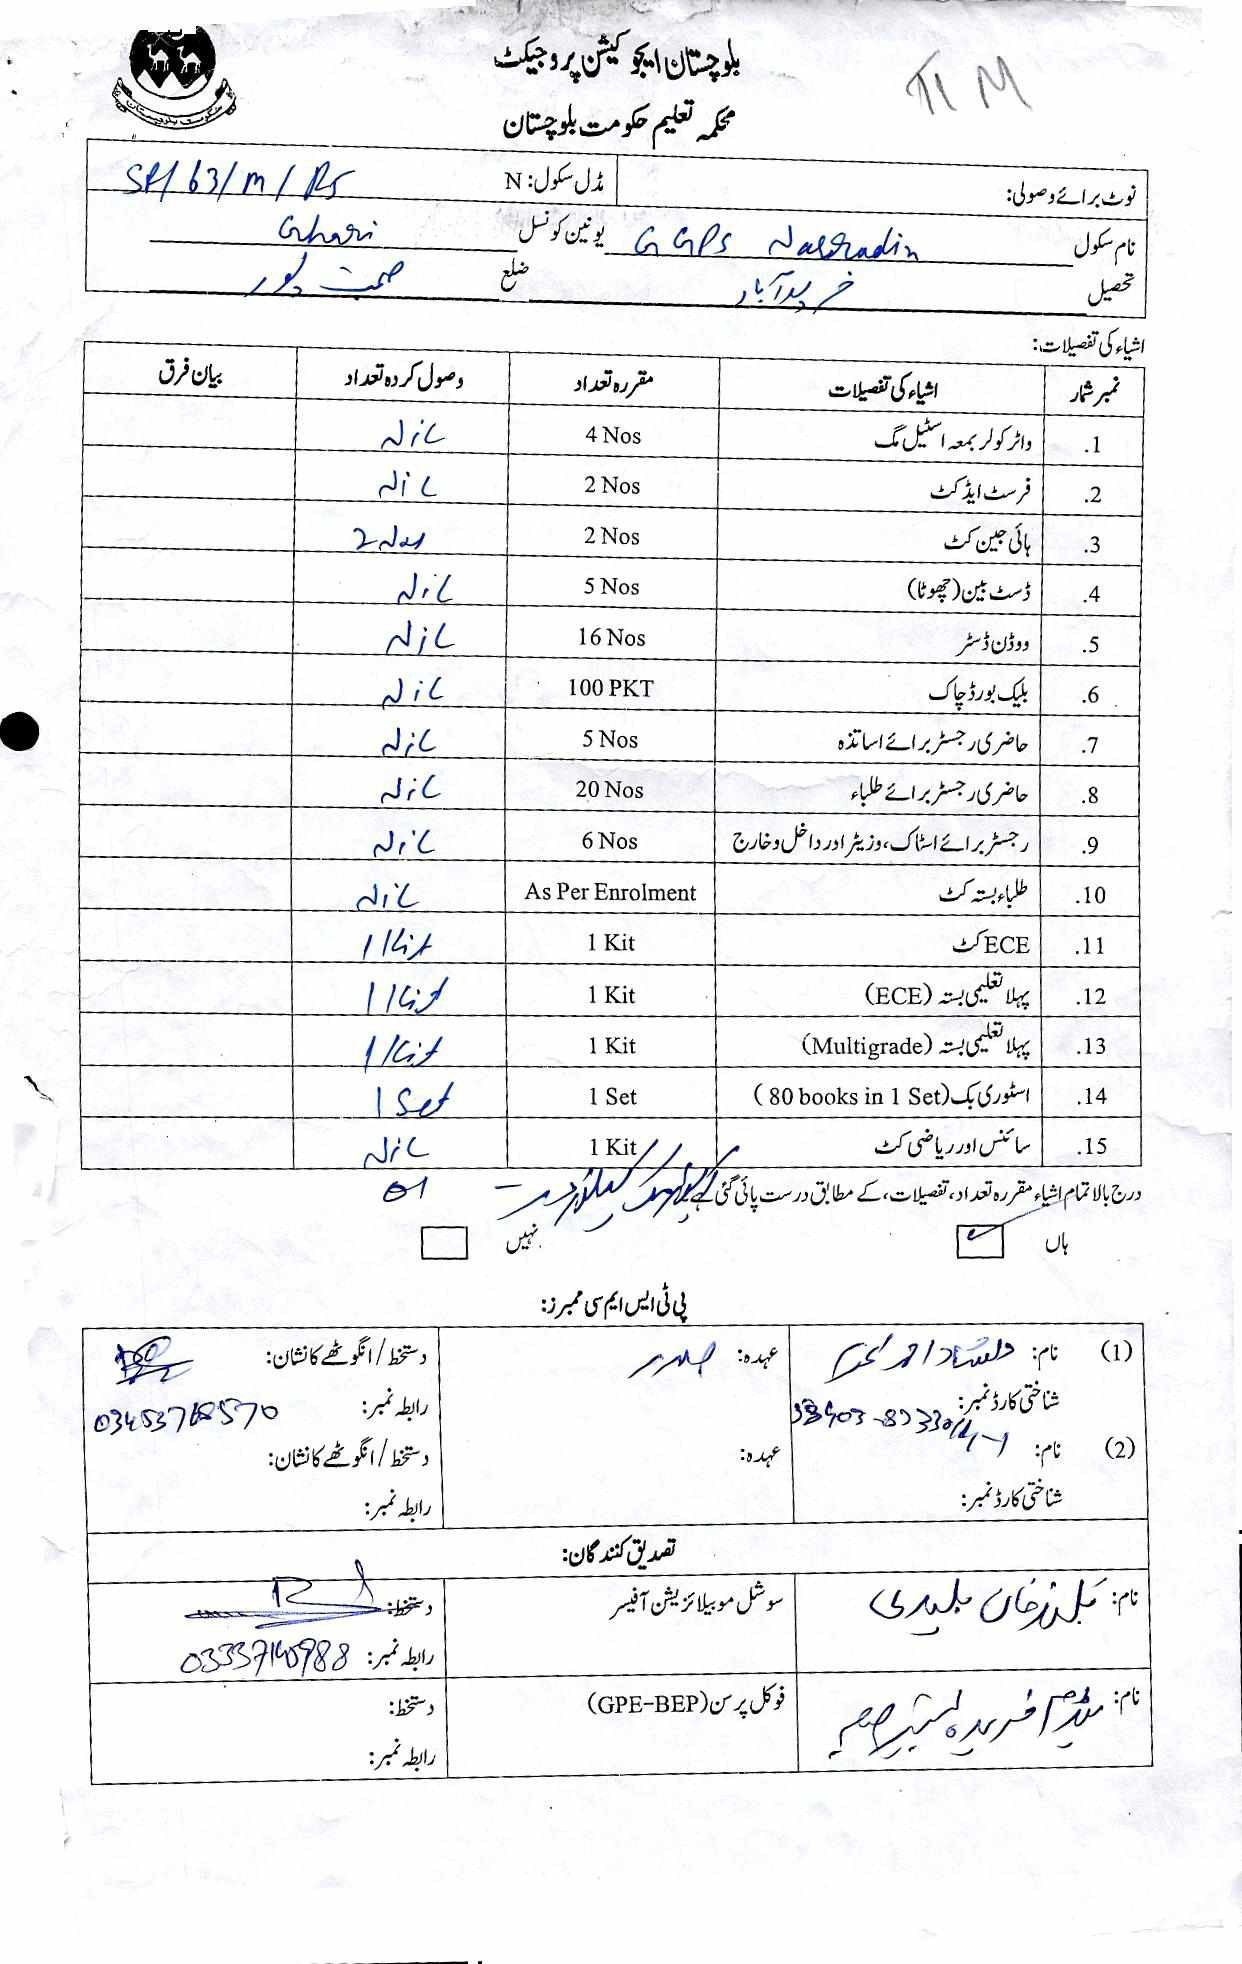 بلوچستان ایجوکیشن پروجیکٹ
TI M
محکمہ تعلیم حکومت بلوچستان
حکومت بلوچستان
نوٹ برائے وصولی: مڈل سکول: N SP/63/M/RS
نام سکول GGPS Nasradin یونین کونسل Ghari
تحصیل فریدآباد ضلع صحبت پور
اشیاء کی تفصیلات:
نمبر شمار اشیاء کی تفصیلات مقررہ تعداد وصول کردہ تعداد بیان فرق
1. واٹر کولر بمعہ اسٹیل مگ 4 Nos Nil
2. فرسٹ ایڈ کٹ 2 Nos Nil
3. ہائی جین کٹ 2 Nos 2 Nos
4. ڈسٹ بین (چھوٹا) 5 Nos Nil
5. ووڈن ڈسٹر 16 Nos Nil
6. بلیک بورڈ چاک 100 PKT Nil
7. حاضری رجسٹر برائے اساتذہ 5 Nos Nil
8. حاضری رجسٹر برائے طلباء 20 Nos Nil
9. رجسٹر برائے اسٹاک، وزیٹر اور داخل و خارج 6 Nos Nil
10. طلباء بستہ کٹ As Per Enrolment Nil
11. ECE کٹ 1 Kit 1 Kit
12. پہلا تعلیمی بستہ (ECE) 1 Kit 1 Kit
13. پہلا تعلیمی بستہ (Multigrade) 1 Kit 1 Kit
14. اسٹوری بک (80 books in 1 Set) 1 Set 1 Set
15. سائنس اور ریاضی کٹ 1 Kit Nil
درج بالا تمام اشیاء مقررہ تعداد، تفصیلات، کے مطابق درست پائی گئی ہے 01
ہاں نہیں
پی ٹی ایس ایم سی ممبرز:
(1) نام: دلشاد احمد عہدہ: صدر دستخط / انگوٹھے کا نشان:
شناختی کارڈ نمبر: رابطہ نمبر: 03453768570
(2) نام: عہدہ: دستخط / انگوٹھے کا نشان:
شناختی کارڈ نمبر: رابطہ نمبر:
تصدیق کنندگان:
نام: خان بلیدی سوشل موبیلائزیشن آفیسر دستخط:
رابطہ نمبر: 03337140988
نام: میڈم فریدہ فوکل پرسن (GPE-BEP) دستخط:
رابطہ نمبر: